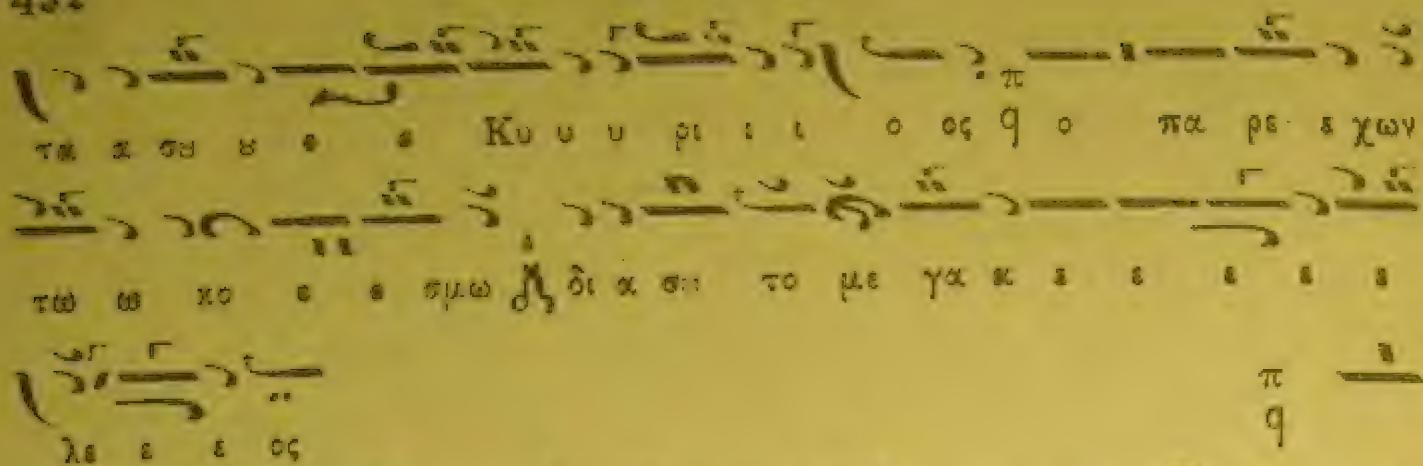 τα α σȣ ȣ ο ο Κυ υ υ ρι ι ι ο ος ο πα ρε ε χων
τω ω κο ο ο σμω δι α σȣ το με γα α ε ε ε ε ε
λε ε ε ος